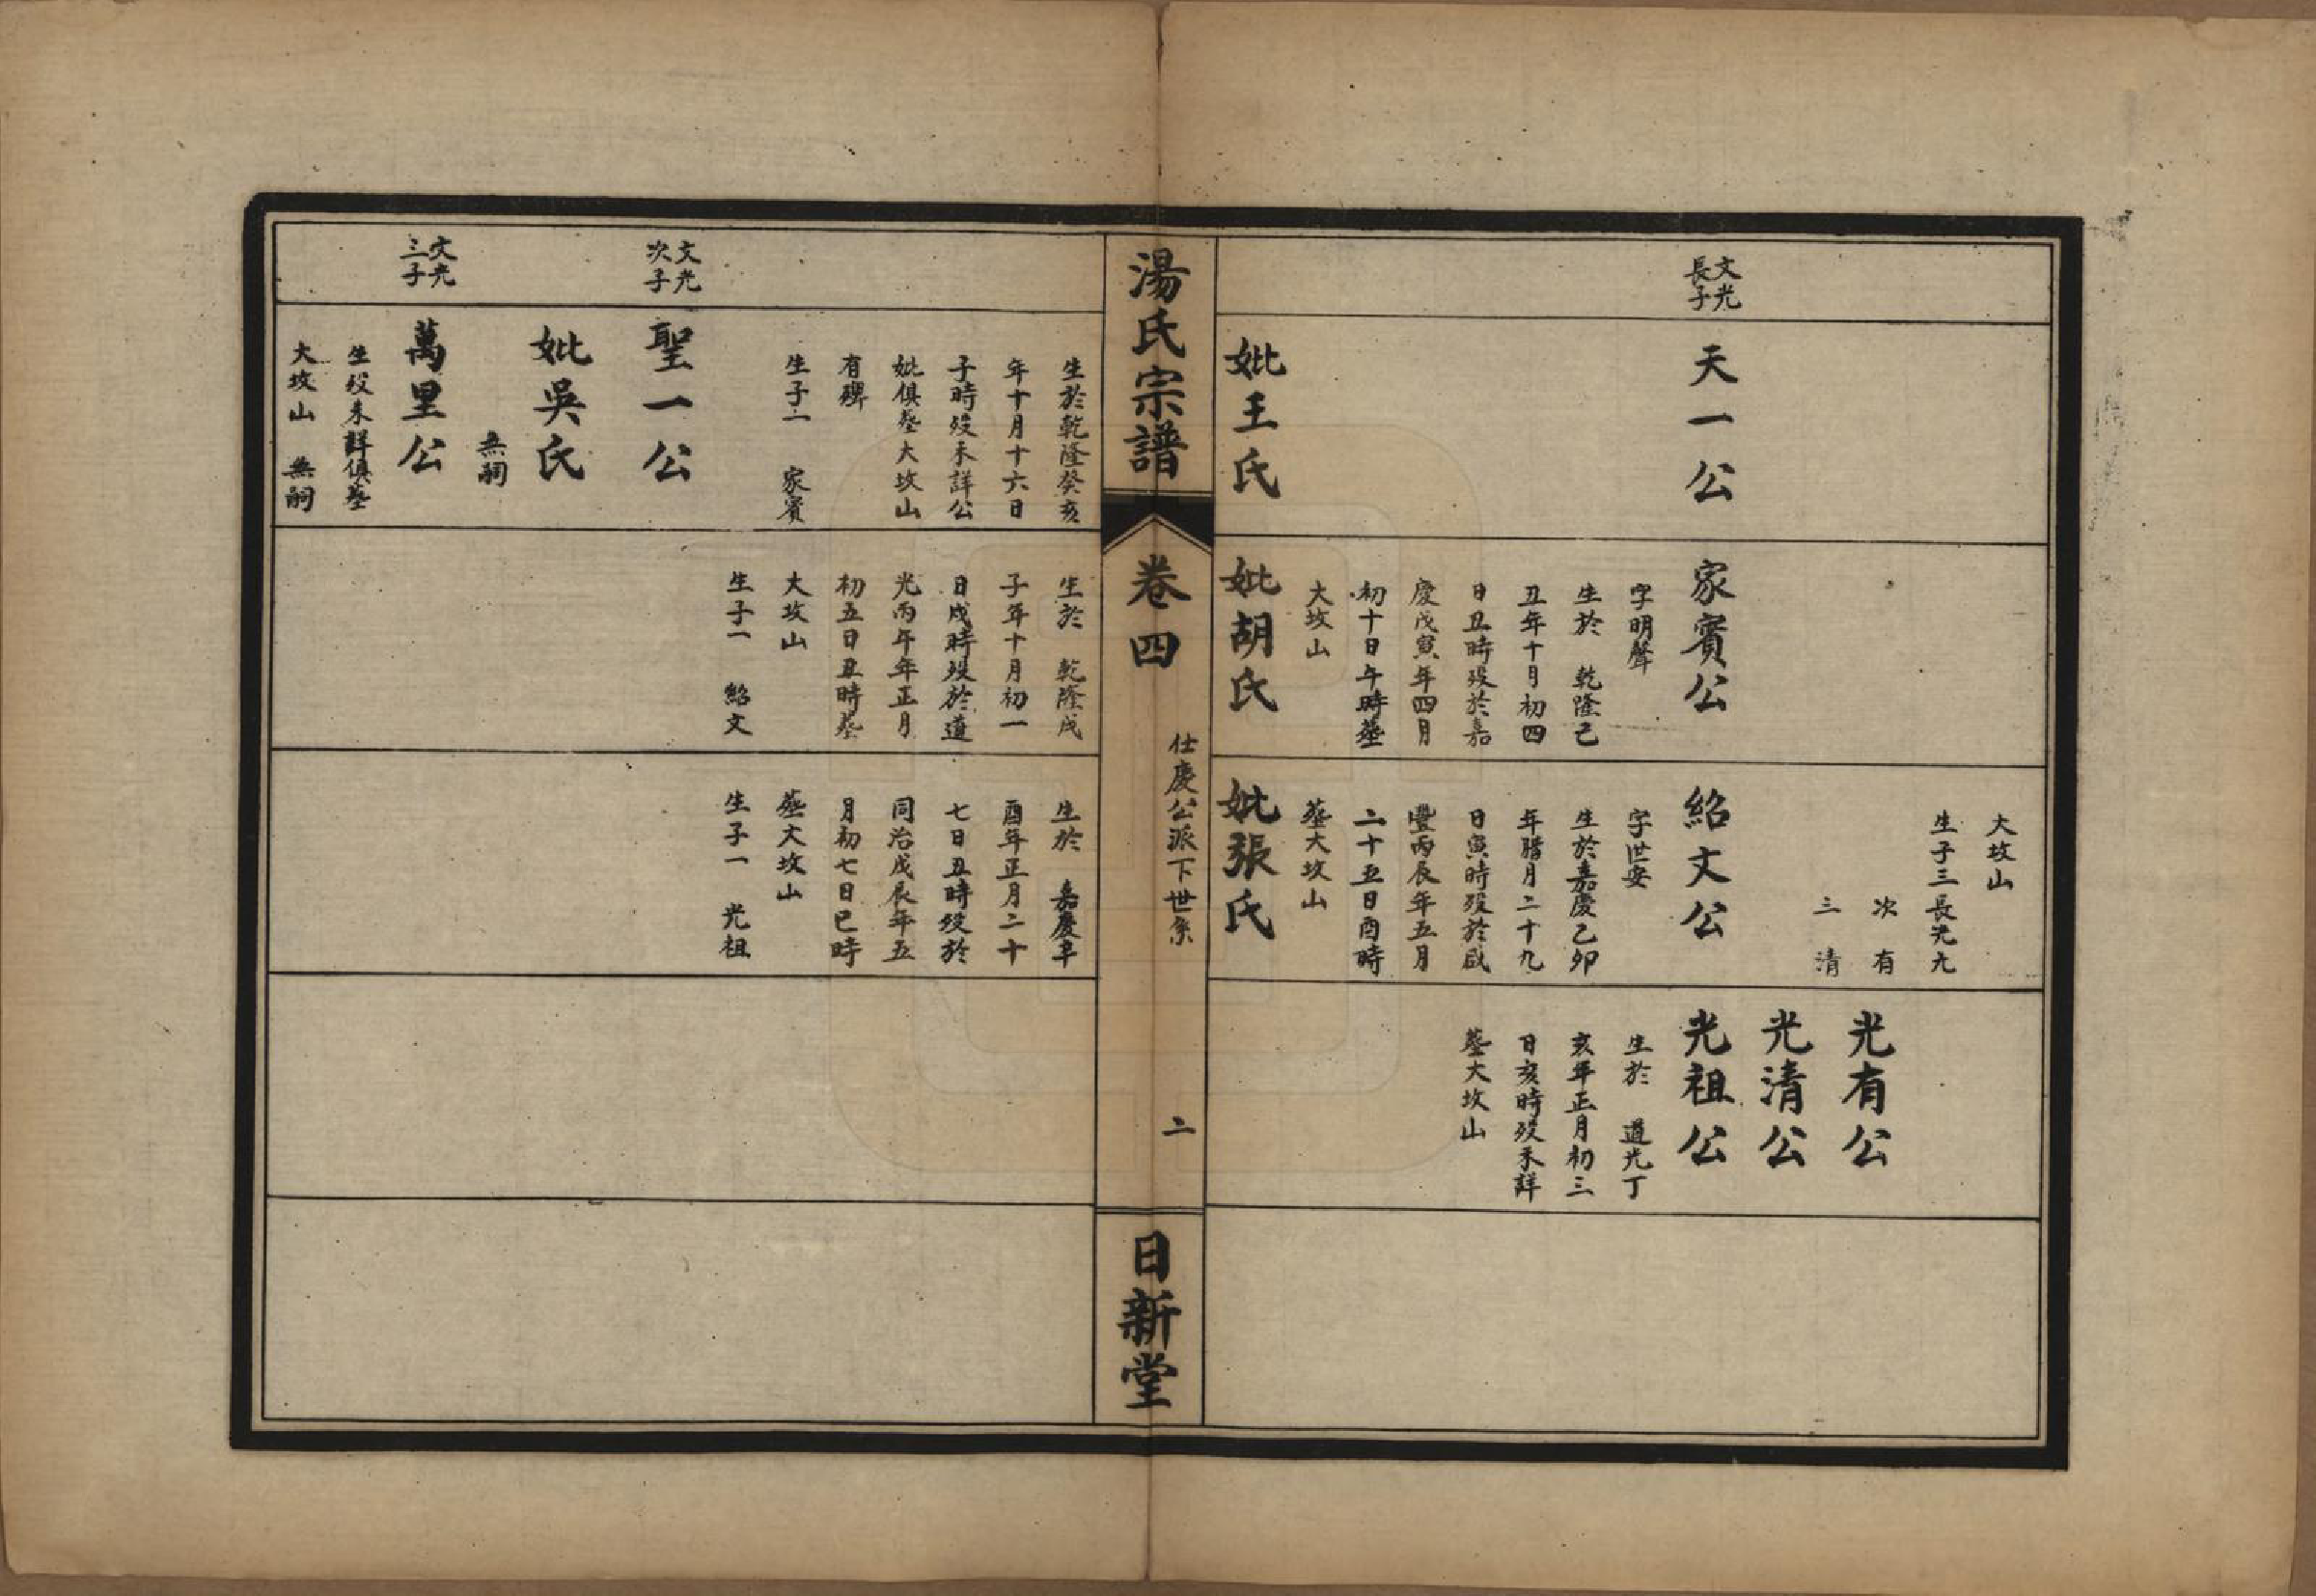 文光
長子
天一公
妣王氏
家賓公
字明聲
生於 乾隆己
丑年十月初四
日丑時歿於嘉
慶戊寅年四月
初十日午時塟
大坟山
妣胡氏
大坟山
生子三長光九
次有
三清
紹文公
字世安
生於嘉慶乙卯
年腊月二十九
日寅時歿於咸
豐丙辰年五月
二十五日酉時
塟大坟山
妣張氏
光有公
光清公
光祖公
生於 道光丁
亥年正月初三
日亥時歿未詳
塟大坟山
湯氏宗譜
卷四
仕慶公派下世系
二
日新堂
生於乾隆癸亥
年十月十六日
子時歿未詳公
妣俱塟大坟山
有碑
生子一 家賓
文光
次子
聖一公
妣吳氏
無嗣
文光
三子
萬里公
生歿未詳俱塟
大坟山 無嗣
生於 乾隆戊
子年十月初一
日戌時歿於道
光丙午年正月
初五日丑時塟
大坟山
生子一 紹文
生於 嘉慶辛
酉年正月二十
七日丑時歿於
同治戊辰年五
月初七日巳時
塟大坟山
生子一 光祖